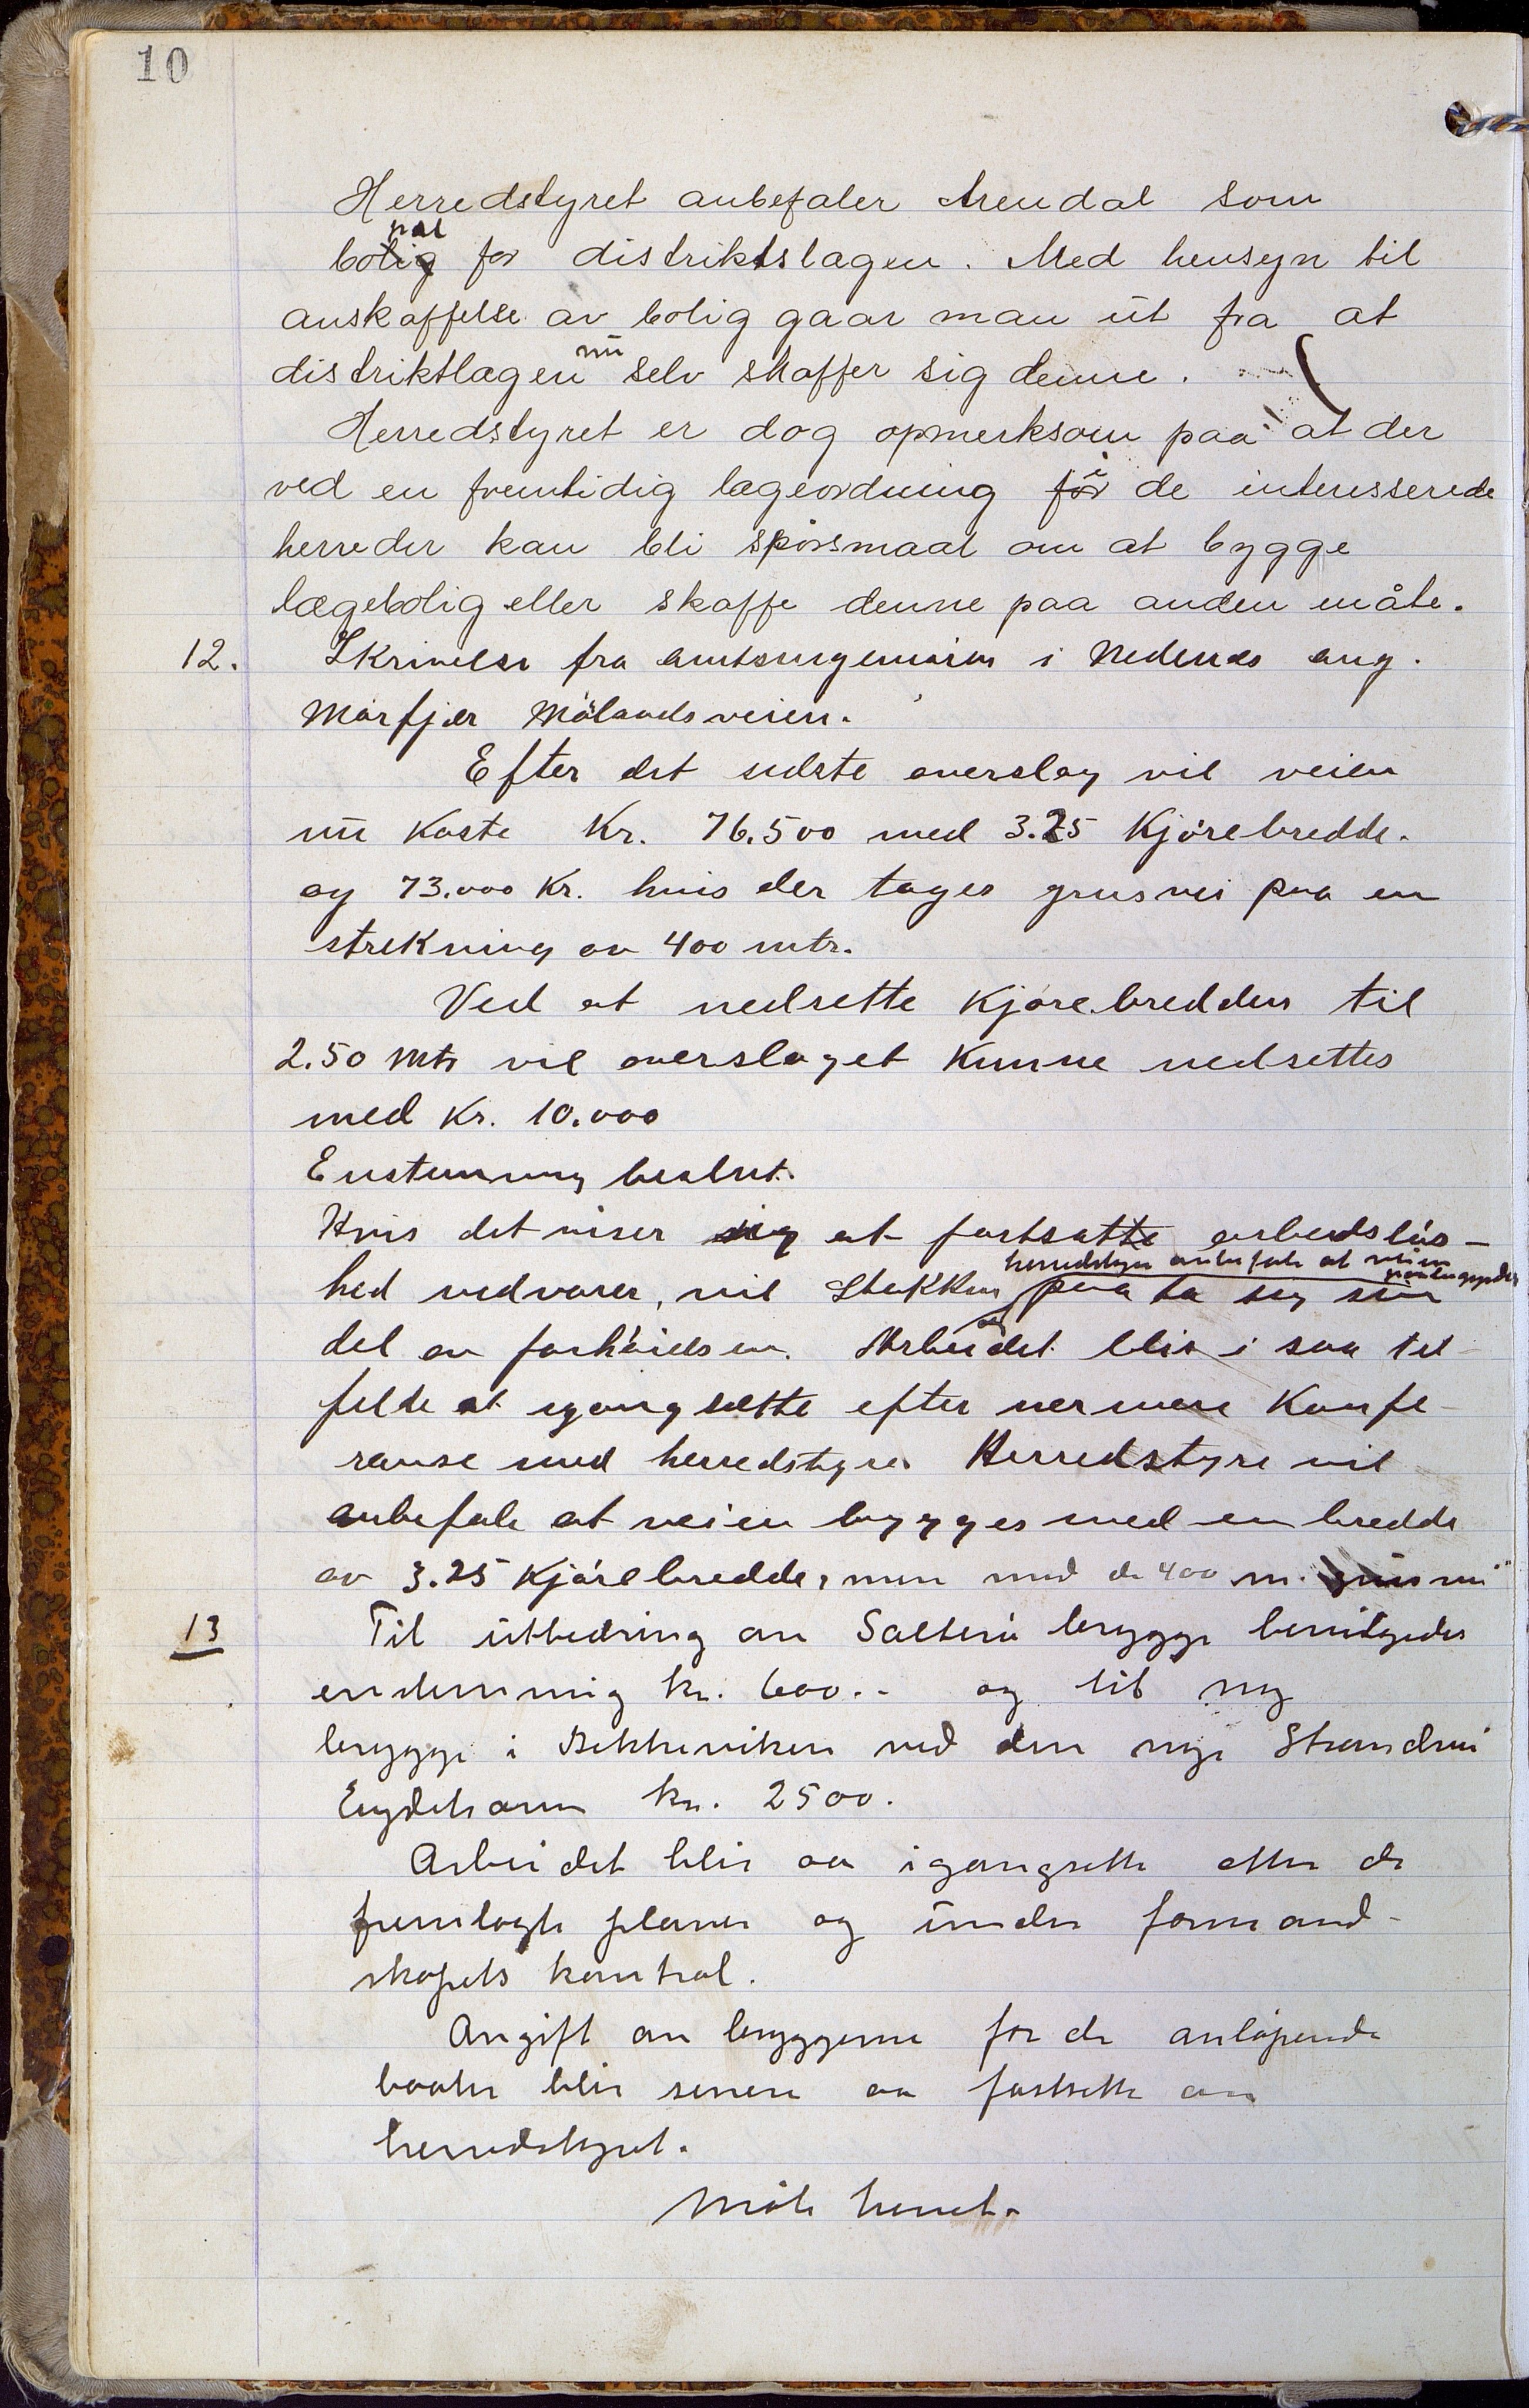 10
Herredstyret anbefaler Arendal som
pæl
bolig for distriktslægen. Med hensyn til
anskaffelse av bolig gaar man ut fra at
distriktlægen nu selv skaffer sig denne.
Herredstyret er dog opmerksom paa at der
ved en fremtidig lægeordning for i de interesserede
herreder kan bli spørsmaal om at bygge
lægebolig eller skaffe denne paa anden måte.
12. Skrivelse fra amtsingeniøren i Nedenes ang.
Mørfjær Mølandsveien.
Efter det sidste overslag vil veien
nu koste Kr. 76.500 med 3.25 Kjørebredde.
og 73.000 Kr. hvis der tages grusvei paa en
strekning av 400 mtr.
Ved at nedsette Kjørebredden til
2.50 Mtr vil overslaget Kunne nedsettes
med Kr. 10.000
Enstemmig beslut.
Hvis det viser sig at fortsatte arbeidsløs-
herredstyre anbefale at veien
hed vedvarer, vil Stokken paa ta sig sin
del av forhøielsen. Arbeidet blir i saa til-
felde at igangsætte efter nermere Konfe-
ranse med herredstyre. Herredstyre vil
anbefale at veien bygges med en bredde
av 3.25 Kjørebredde, men med de 400 m. grusvei
13 Til utbedring av Salterø brygge bevilgedes
enstemmig kr. 600.- og til ny
brygge i Bekkeviken ved den nye Strandvei
Eydehavn kr. 2500.
Arbeidet blir aa igangsette etter de
fremlagte planer og under formand-
skapets kontrol.
Avgift av bryggerne for de anløpende
baater blir senere aa fastsette av
herredstyret.
Møte hevet.